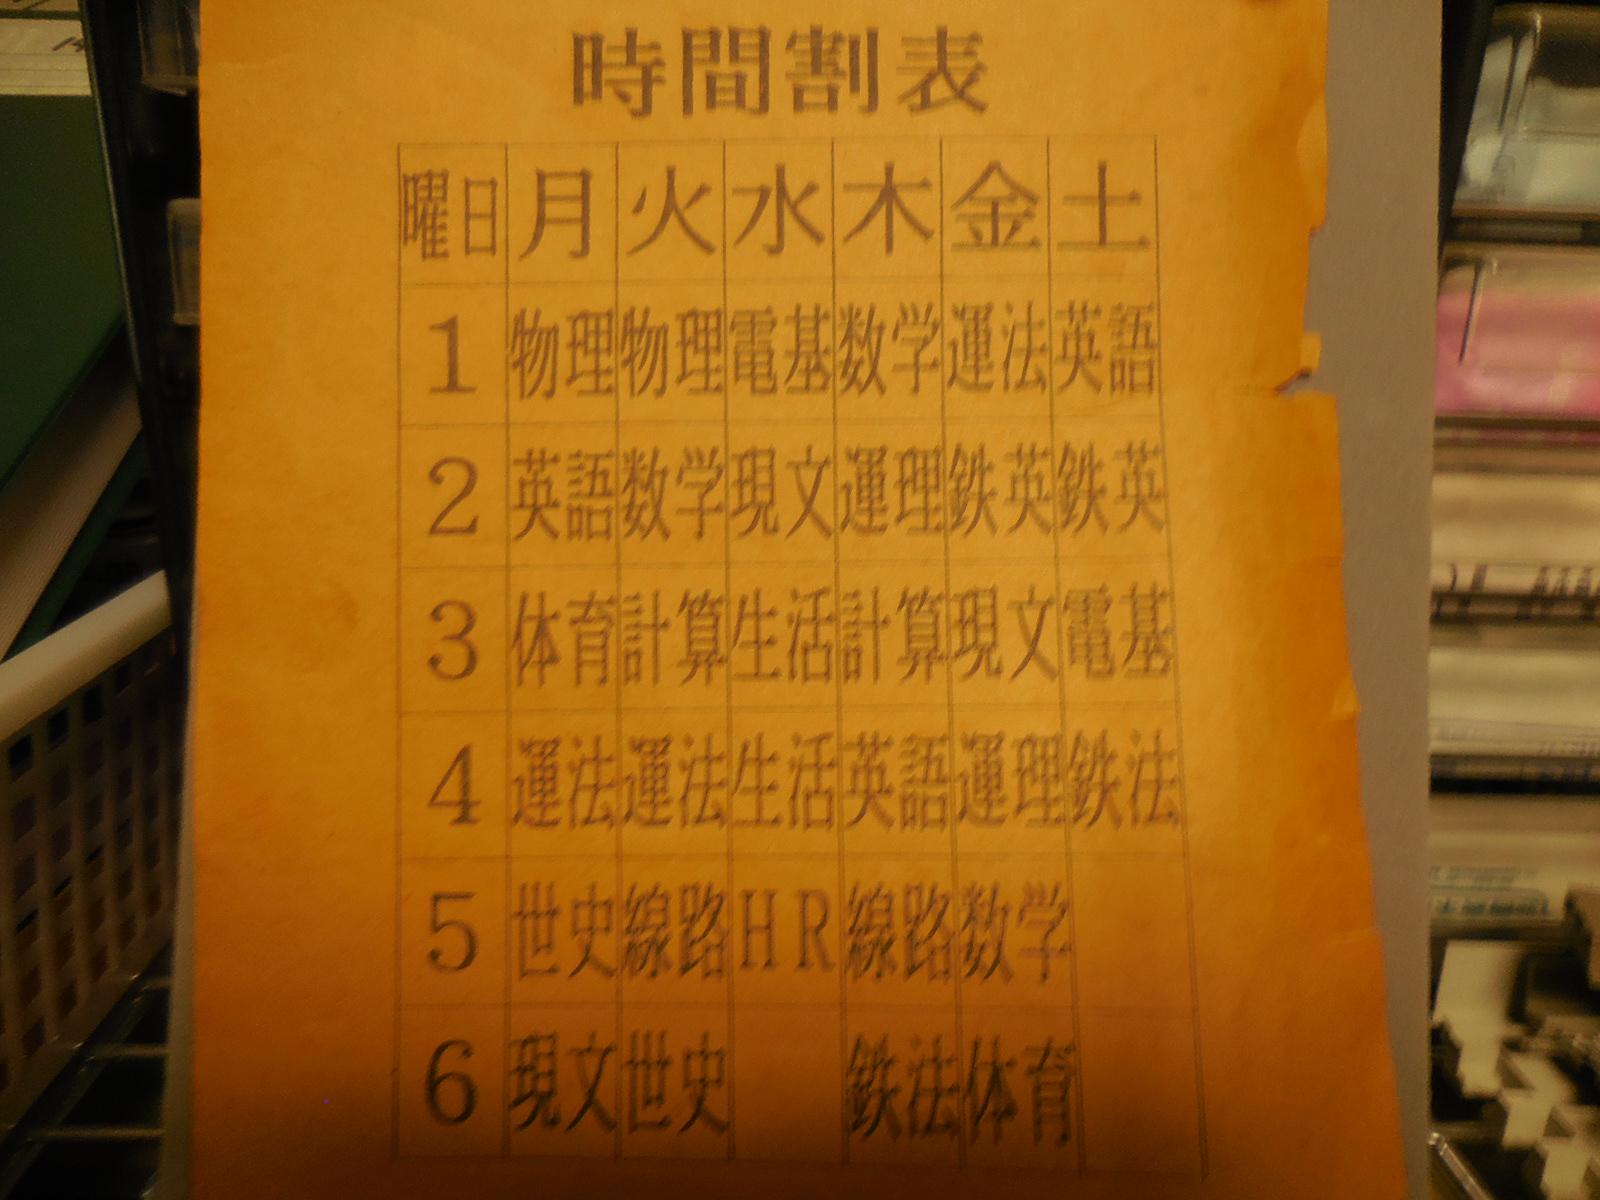 時間割表
曜日 月 火 水 木 金 土
1 物理 物理 電基 数学 運法 英語
2 英語 数学 現文 運理 鉄英 鉄英
3 体育 計算 生活 計算 現文 電基
4 運法 運法 生活 英語 運理 鉄法
5 世史 線路 HR 線路 数学
6 現文 世史 鉄法 体育